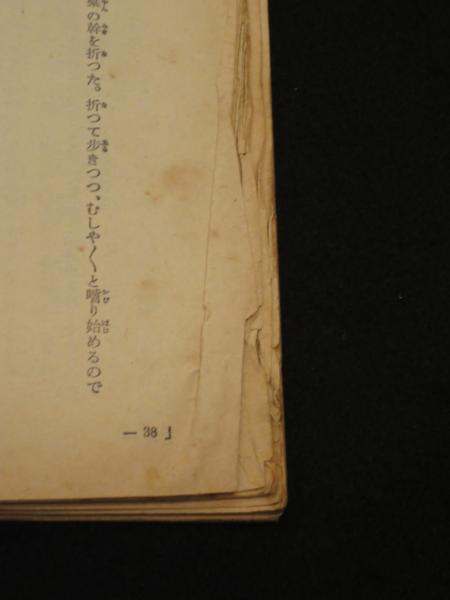 の幹を折つた。折つて歩きつつ、むしや〳〵と嚙り始めるので
— 38